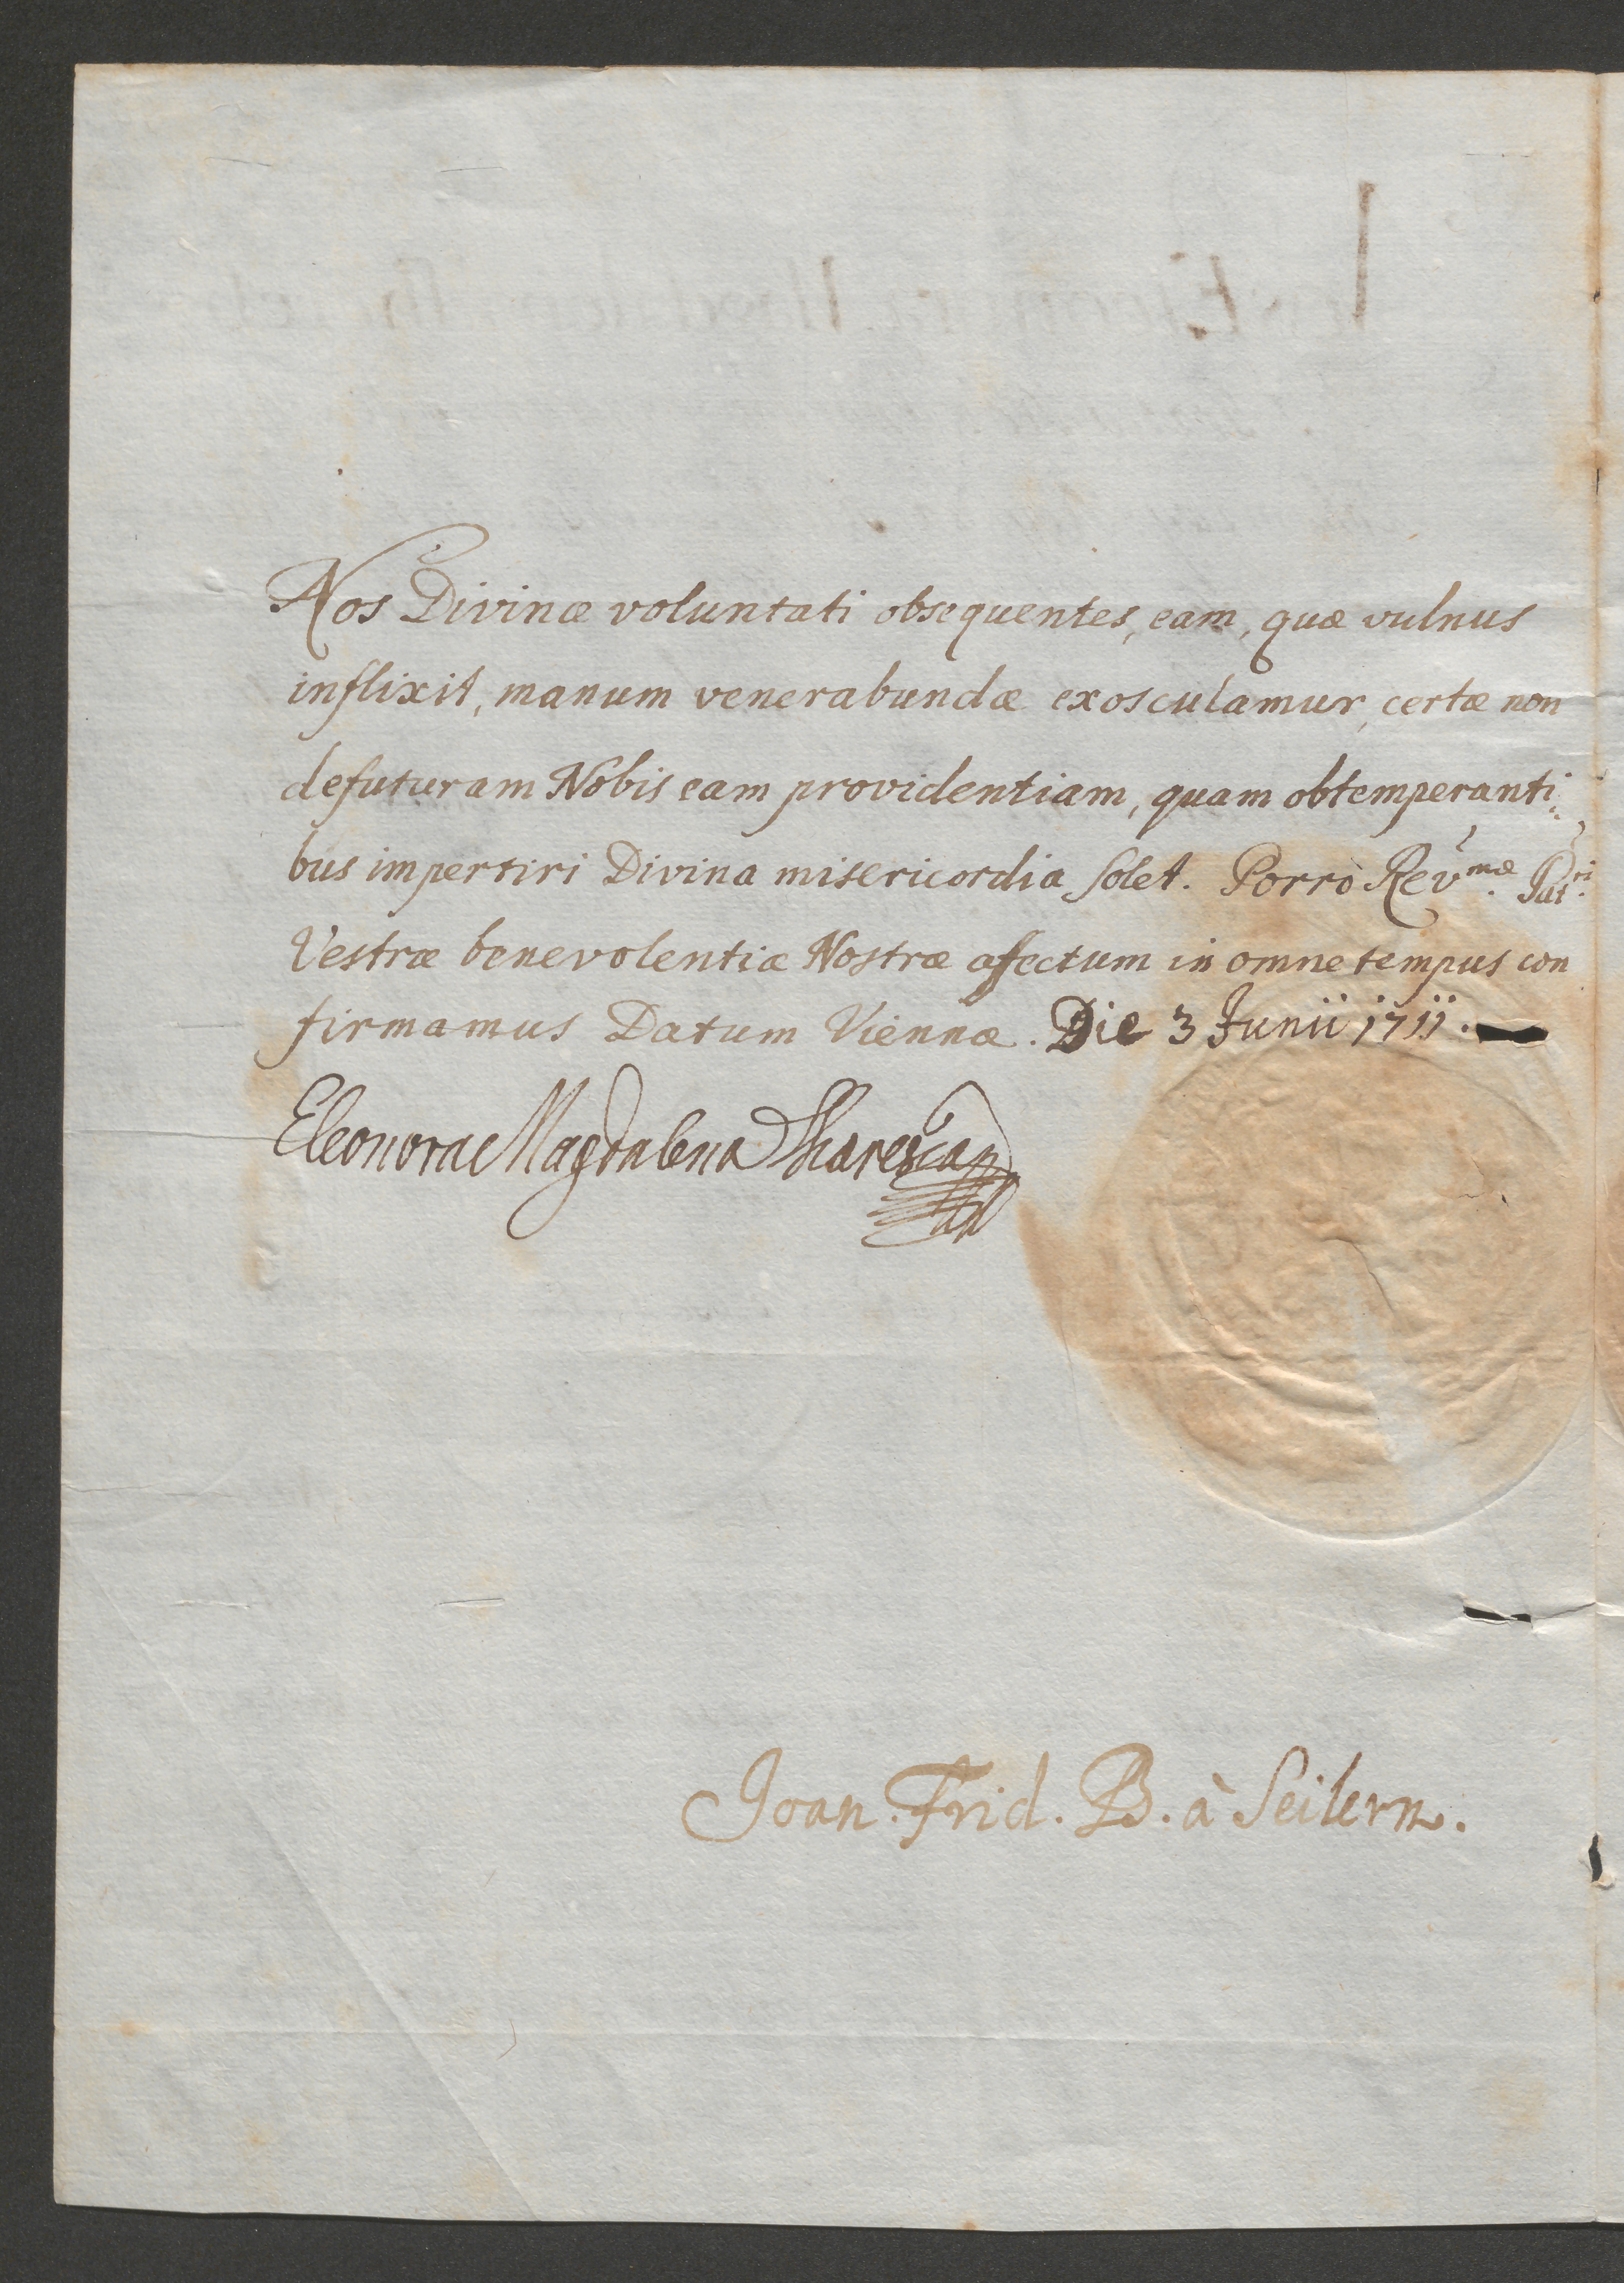 Nos Divinæ voluntati obsequentes, eam, quæ vulnus
inflixit, manum venerabundæ exosculamur, certæ non
defuturam Nobis eam providentiam, quam obtemperanti
bus impertiri Divina misericordia solet. Porrò Rev.mæ Pat.ri
Vestræ benevolentiæ Nostræ afectum in omne tempus con
firmamus Datum Viennæ. Die 3 Junii 1711.
Eleonora Magdalena Tharesia
Joan. Frid. B. à Seilern.